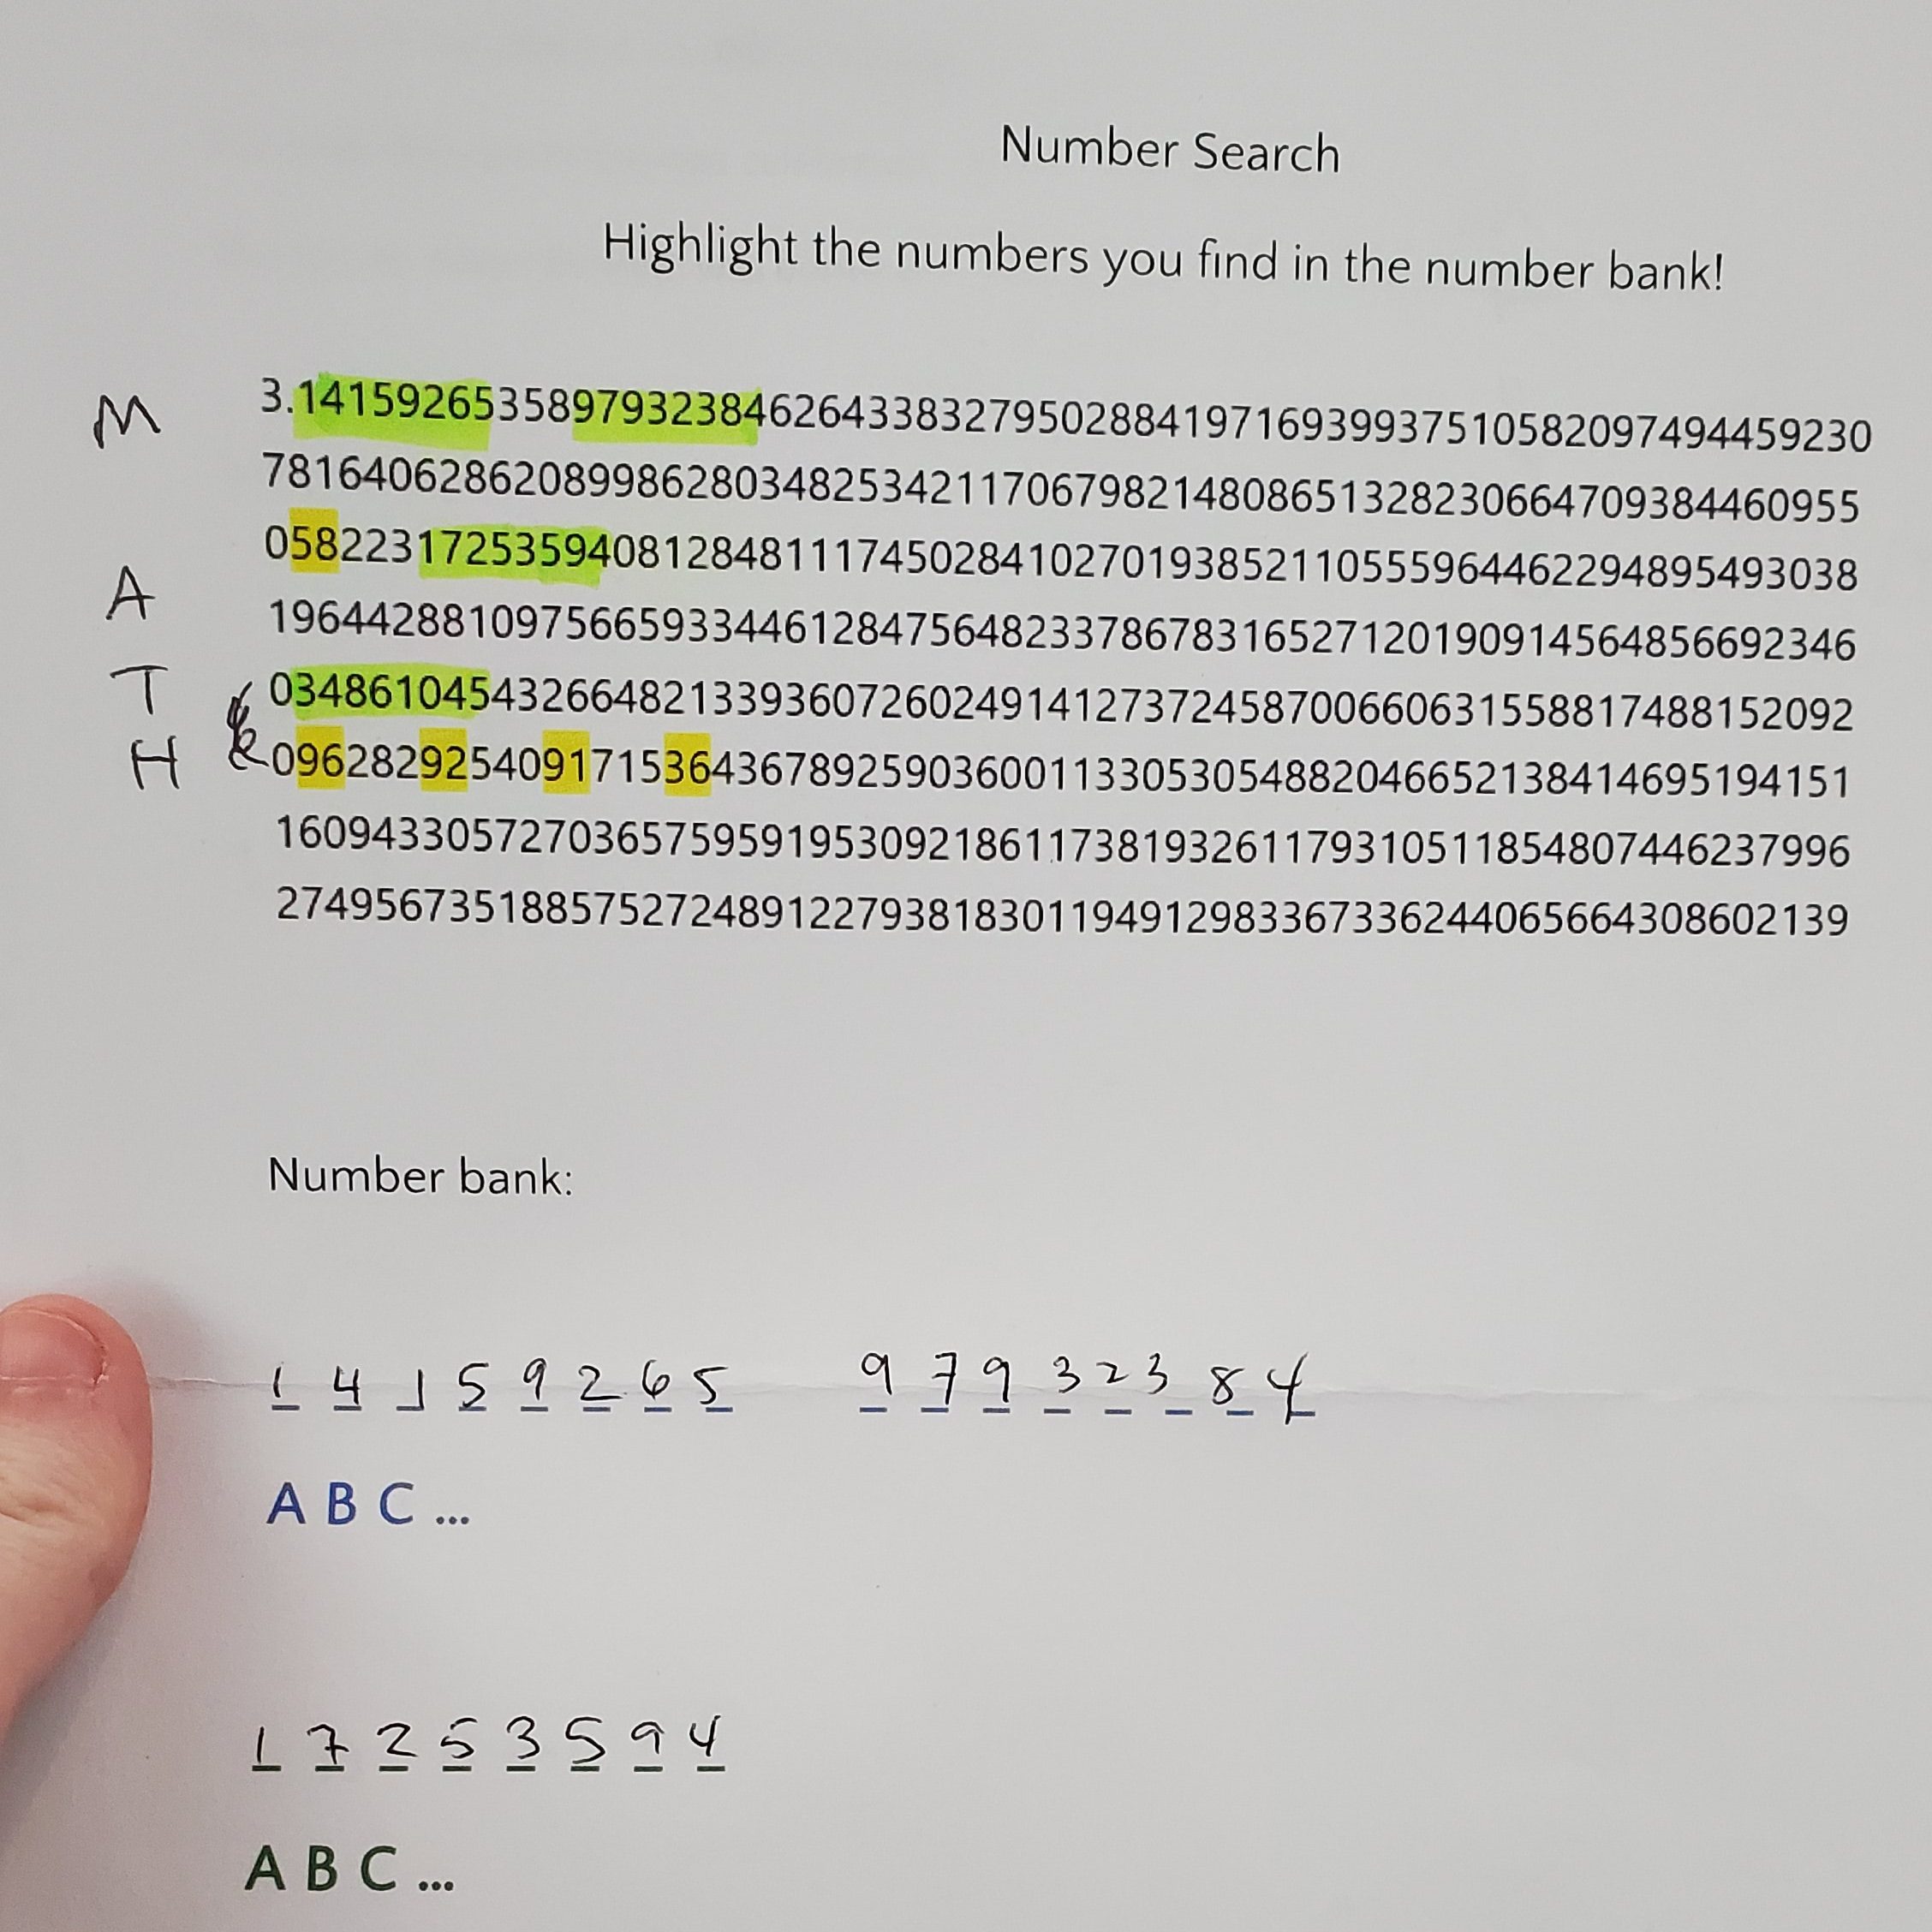 Number Search
Highlight the numbers you find in the number bank!
M 3.14159265358979323846264338327950288419716939937510582097494459230
78164062862089986280348253421170679821480865132823066470938446095​5
058223172535940812848111745028410270193852110555964462294895493038
A
196442881097566593344612847564823378678316527120190914564856692346
T 034861045432664821339360726024914127372458700660631558817488152092
H 096282925409171536436789259036001133053054882046652138414695194151
160943305727036575959195309218611738193261179310511854807446237996
274956735188575272489122793818301194912983367336244065664308602139
Number bank:
1 4 1 5 9 2 6 5 9 7 9 3 2 3 8 4
A B C ...
1 7 2 5 3 5 9 4
A B C ...